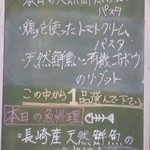 本日の
パスタ
・鶏を使ったトマトクリーム
パスタ
・天然鯛と有機ゴボウ
のリゾット
この中から1品選んで下さい
本日の魚料理
・長崎産 天然鮮魚の